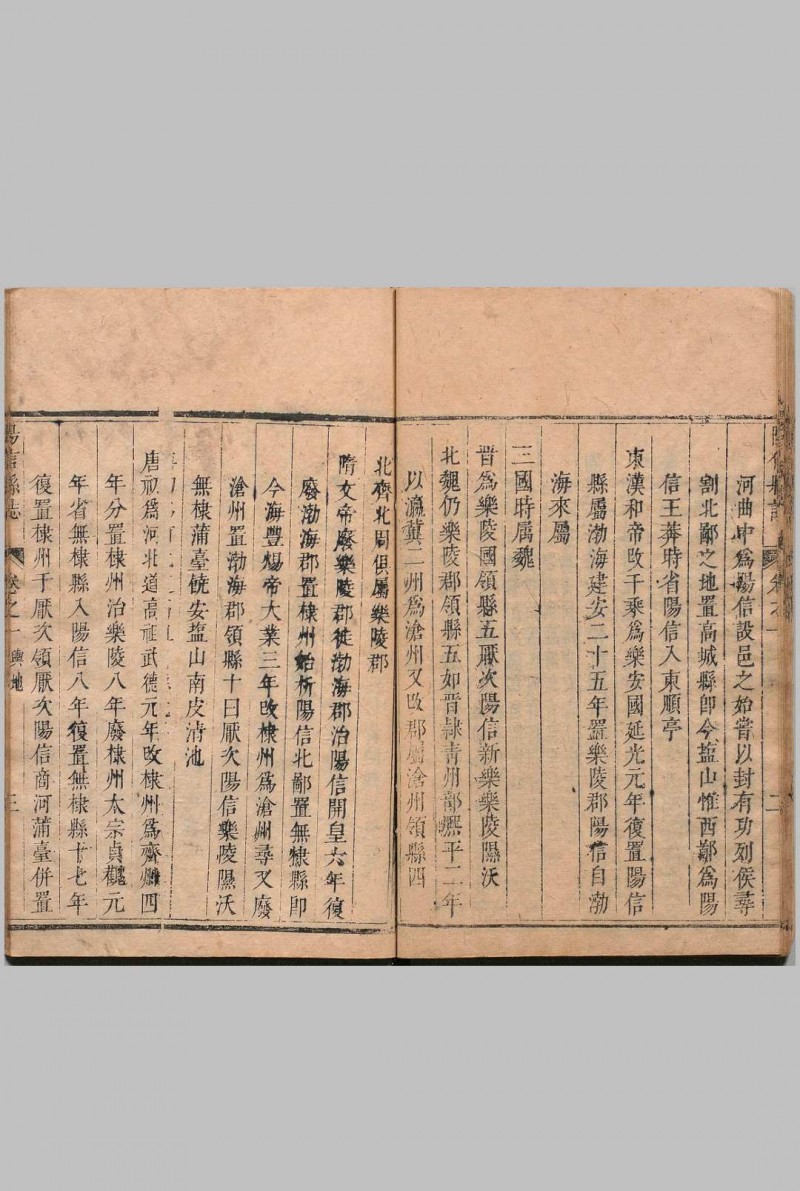 河曲中爲陽信設邑之始嘗以封有功列侯尋
割北鄙之地置高城縣卽今盐山惟西鄰爲陽
信王莽時省陽信入東順亭
東漢和帝改千乘爲樂安國延光元年復置陽信
縣屬渤海建安二十五年置樂陵郡陽信自渤
海來屬
三國時属魏
晋爲樂陵國領縣五厭次陽信新樂樂陵隰沃
北魏仍樂陵郡領縣五如晋隷青州部熈平二年
以瀛冀二州爲滄州又改郡屬滄州領縣四
北齊北周俱屬樂陵郡
隋文帝廢樂陵郡徙渤海郡治陽信開皇六年復
廢渤海郡置棣州始析陽信北鄙置無棣縣卽
今海豐煬帝大業三年改棣州爲滄州尋又廢
滄州置渤海郡領縣十曰厭次陽信樂陵隰沃
無棣蒲臺饒安盐山南皮清池
唐初爲河北道高祖武德元年改棣州爲滄州四
年分置棣州治樂陵八年廢棣州太宗貞觀元
年省無棣縣入陽信八年復置無棣縣十七年
復置棣州于厭次領厭次陽信商河蒲臺併置
陽信縣志 卷之一 輿地 三